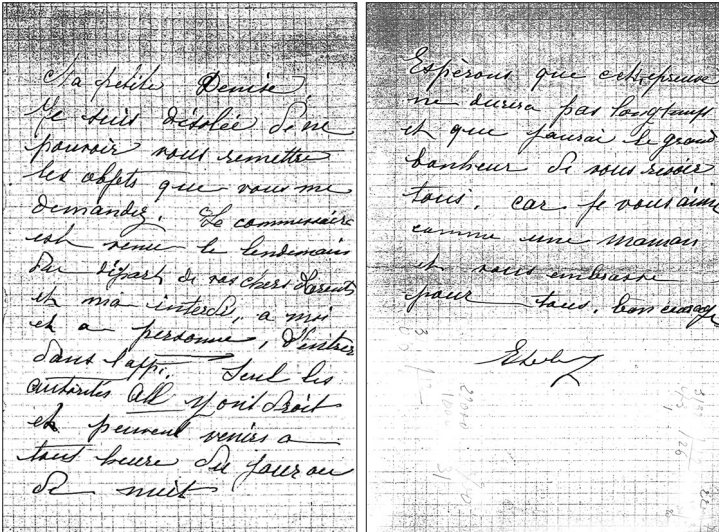 Ma petite Denise,
Je suis désolée de ne
pouvoir vous remettre
les objets que vous me
demandez. Le commissaire
est venu le lendemain
du départ de vos chers Parents
et ma interdi, a moi
et a personne, d'entrer
dans l'app. Seul les
autorités All y ont droit
et peuvent venirs a
tout heure du jour ou
de nuit
Espérons que cette épreuve
ne durera pas longtamps
et que j'aurai le grand
bonheur de vous revoir
tous. car je vous aime
comme une maman
et vous embrasse
pour tous. bon courage